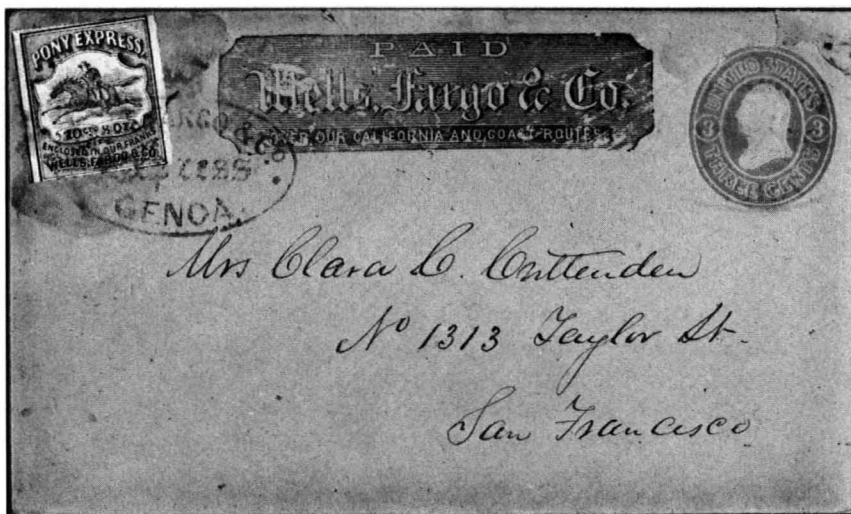 PONY EXPRESS
10 Cts ½ OZ
ENCLOSED IN OUR FRANKS
WELLS, FARGO & CO.
PAID
Wells, Fargo & Co.
OVER OUR CALIFORNIA AND COAST ROUTES.
UNITED STATES
3 3
THREE CENTS
ARGO & CO
EXPRESS
GENOA.
Mrs Clara C. Crittenden
No 1313 Taylor St.
San Francisco